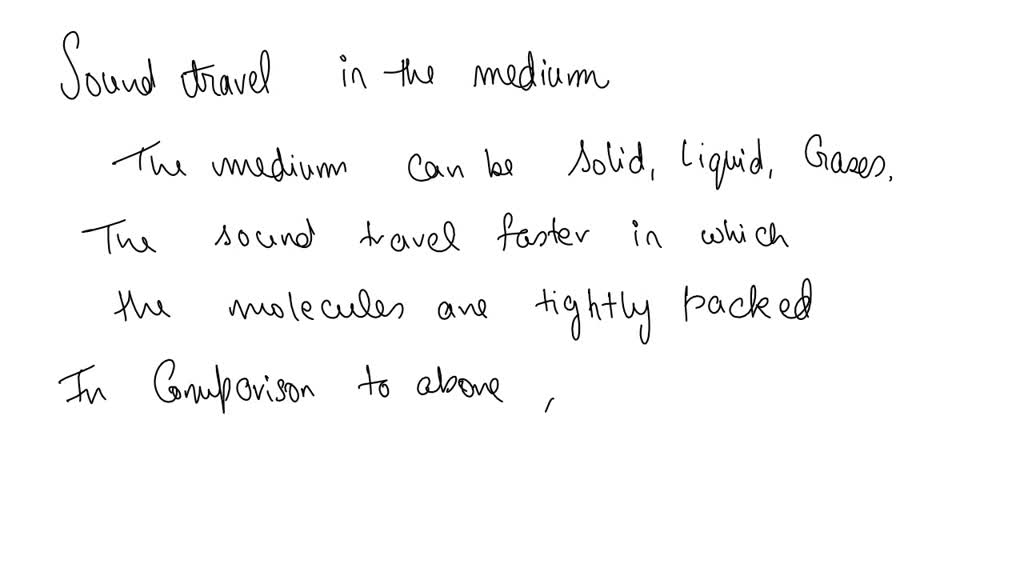 Sound travel in the medium
The medium can be solid, Liquid, Gases.
The sound travel faster in which
the molecules are tightly packed
In Comparison to above ,